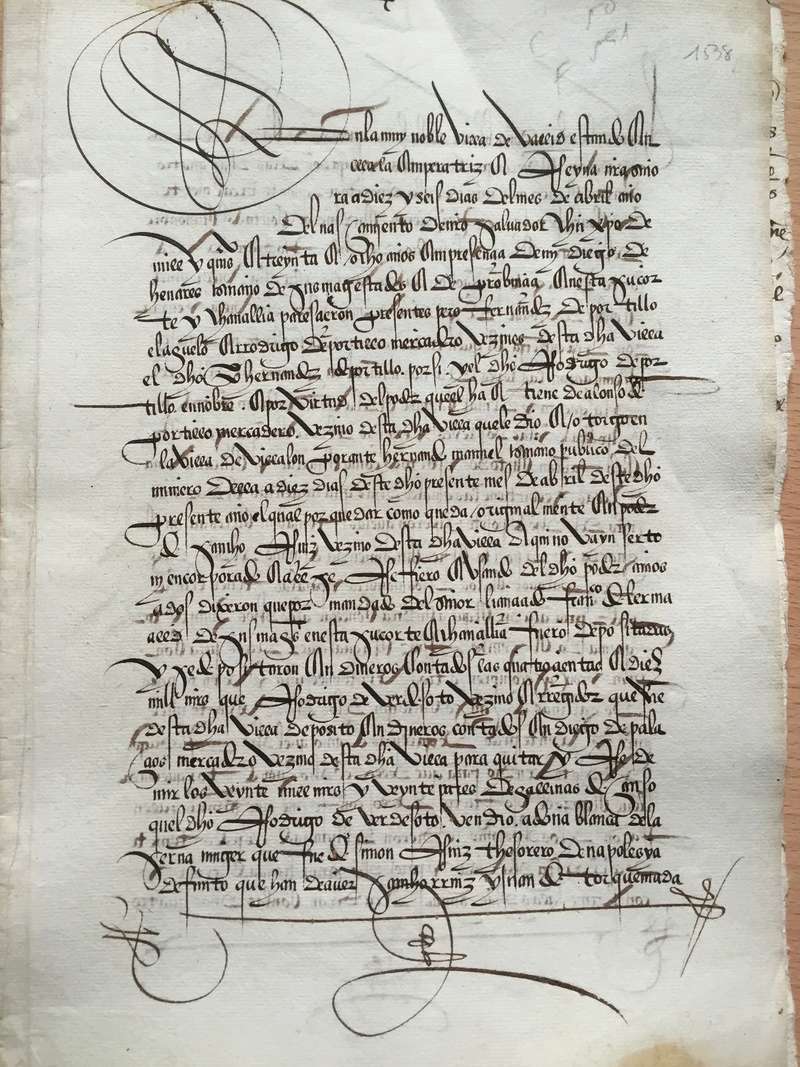 1538
En la muy noble villa de vallid estando en
ella la emperatriz e Reyna nra señora
a diez y seis dias del mes de abril año
del nasçimiento de nro salvador yhu xpo de
mill y quis e treynta e ocho años en presençia de my diego de
henares escrivano de sus magestades e de provinçia en esta su cor
te y chançilleria paresçieron presentes pero fernandez de portillo
e rrodrigo de portillo mercadero vezinos desta dha villa
el dho po hernandez de portillo por si y el dho Rodrigo de por
tillo en nonbre e por virtud del poder quel ha e tiene de alonso de
portillo mercadero vezino desta dha villa que le dio e otorgo en
la villa de villalon por ante hernand manuel escrivano publico del
numero della a diez dias deste dho presente mes de abril deste dho
presente año el qual por quedar como queda original mente en poder
de sancho Ruiz vezino desta dha villa no va ynserto
ny encorporado e a el se Refiero e usando del dho poder amos
a dos dixeron que por mandado del señor liçençiado franco de lerma
alld de sus mags en esta su corte e chançilleria fueron depositarios
y se depositaron en dineros contados las quatroçientas e diez
mill mrs que Rodrigo de verdesoto vezino e rregidor que fue
desta dha villa deposito en dineros contados en diego de pala
çios mercadero vezino desta dha villa para quitar y Rede
mir los veynte mill mrs y veynte pares de gallinas de çenso
quel dho Rodrigo de verdesoto vendio a doña blanca de la
serna muger que fue de simon Ruiz thesorero de napoles ya
defunto que han de aver sancho rruiz y juan de torquemada